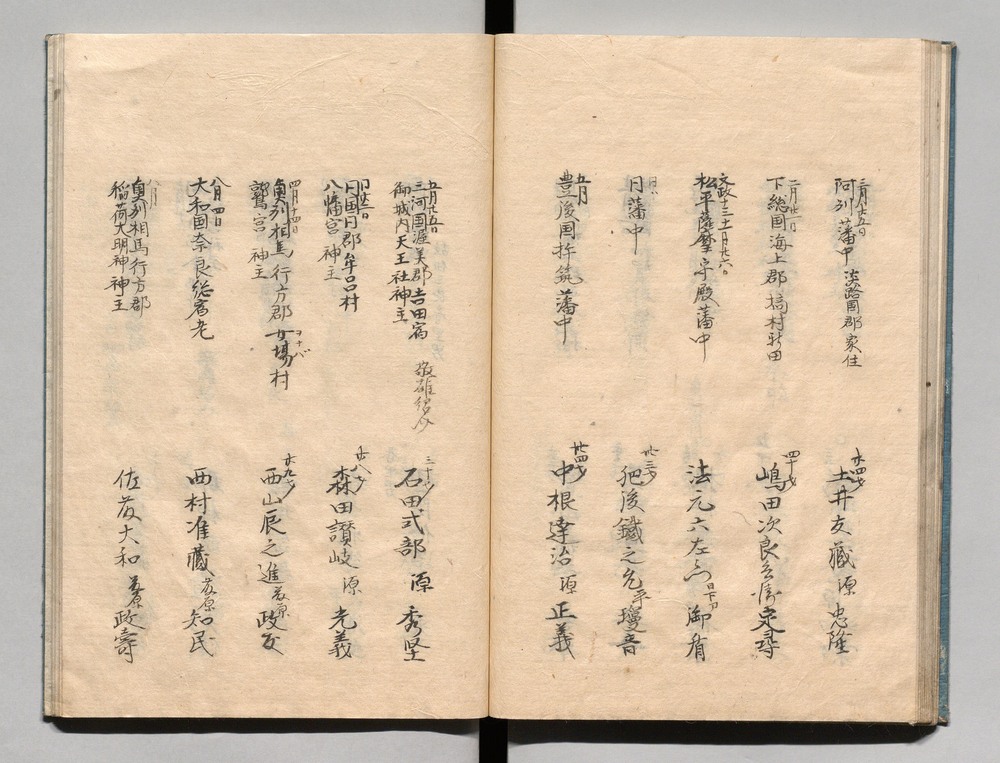 三月十五日
阿州藩中 淡路国郡家住
廿四才
土井友蔵 源忠隆
二月廿二日
下総国海上郡 村新田
四十才
嶋田次良兵衛定尋
文政十三十一月廿六日
松平薩摩守殿藩中
法元六左衛門 日下部 御楯
同
同藩中
廿三才
肥後鐵之允 平瓊音
五月
豊後国杵筑藩中
廿四才
中根達治 源正義
五月廿五日
三河国渥美郡吉田宿
御城内天王社神主
敬雄紹介
三十才
石田式部 源秀堅
同廿二日
同国同郡牟呂村
八幡宮 神主
廿八才
森田讃岐 源光義
四月十四日
奥州相馬行方郡女場村
ヲナバ
鷲宮 神主
廿九才
西山辰之進 藤原政友
八月四日
大和国奈良総宿老
西村准蔵 藤原知民
八月
奥州相馬行方郡
稲荷大明神神主
佐藤大和 藤原政壽